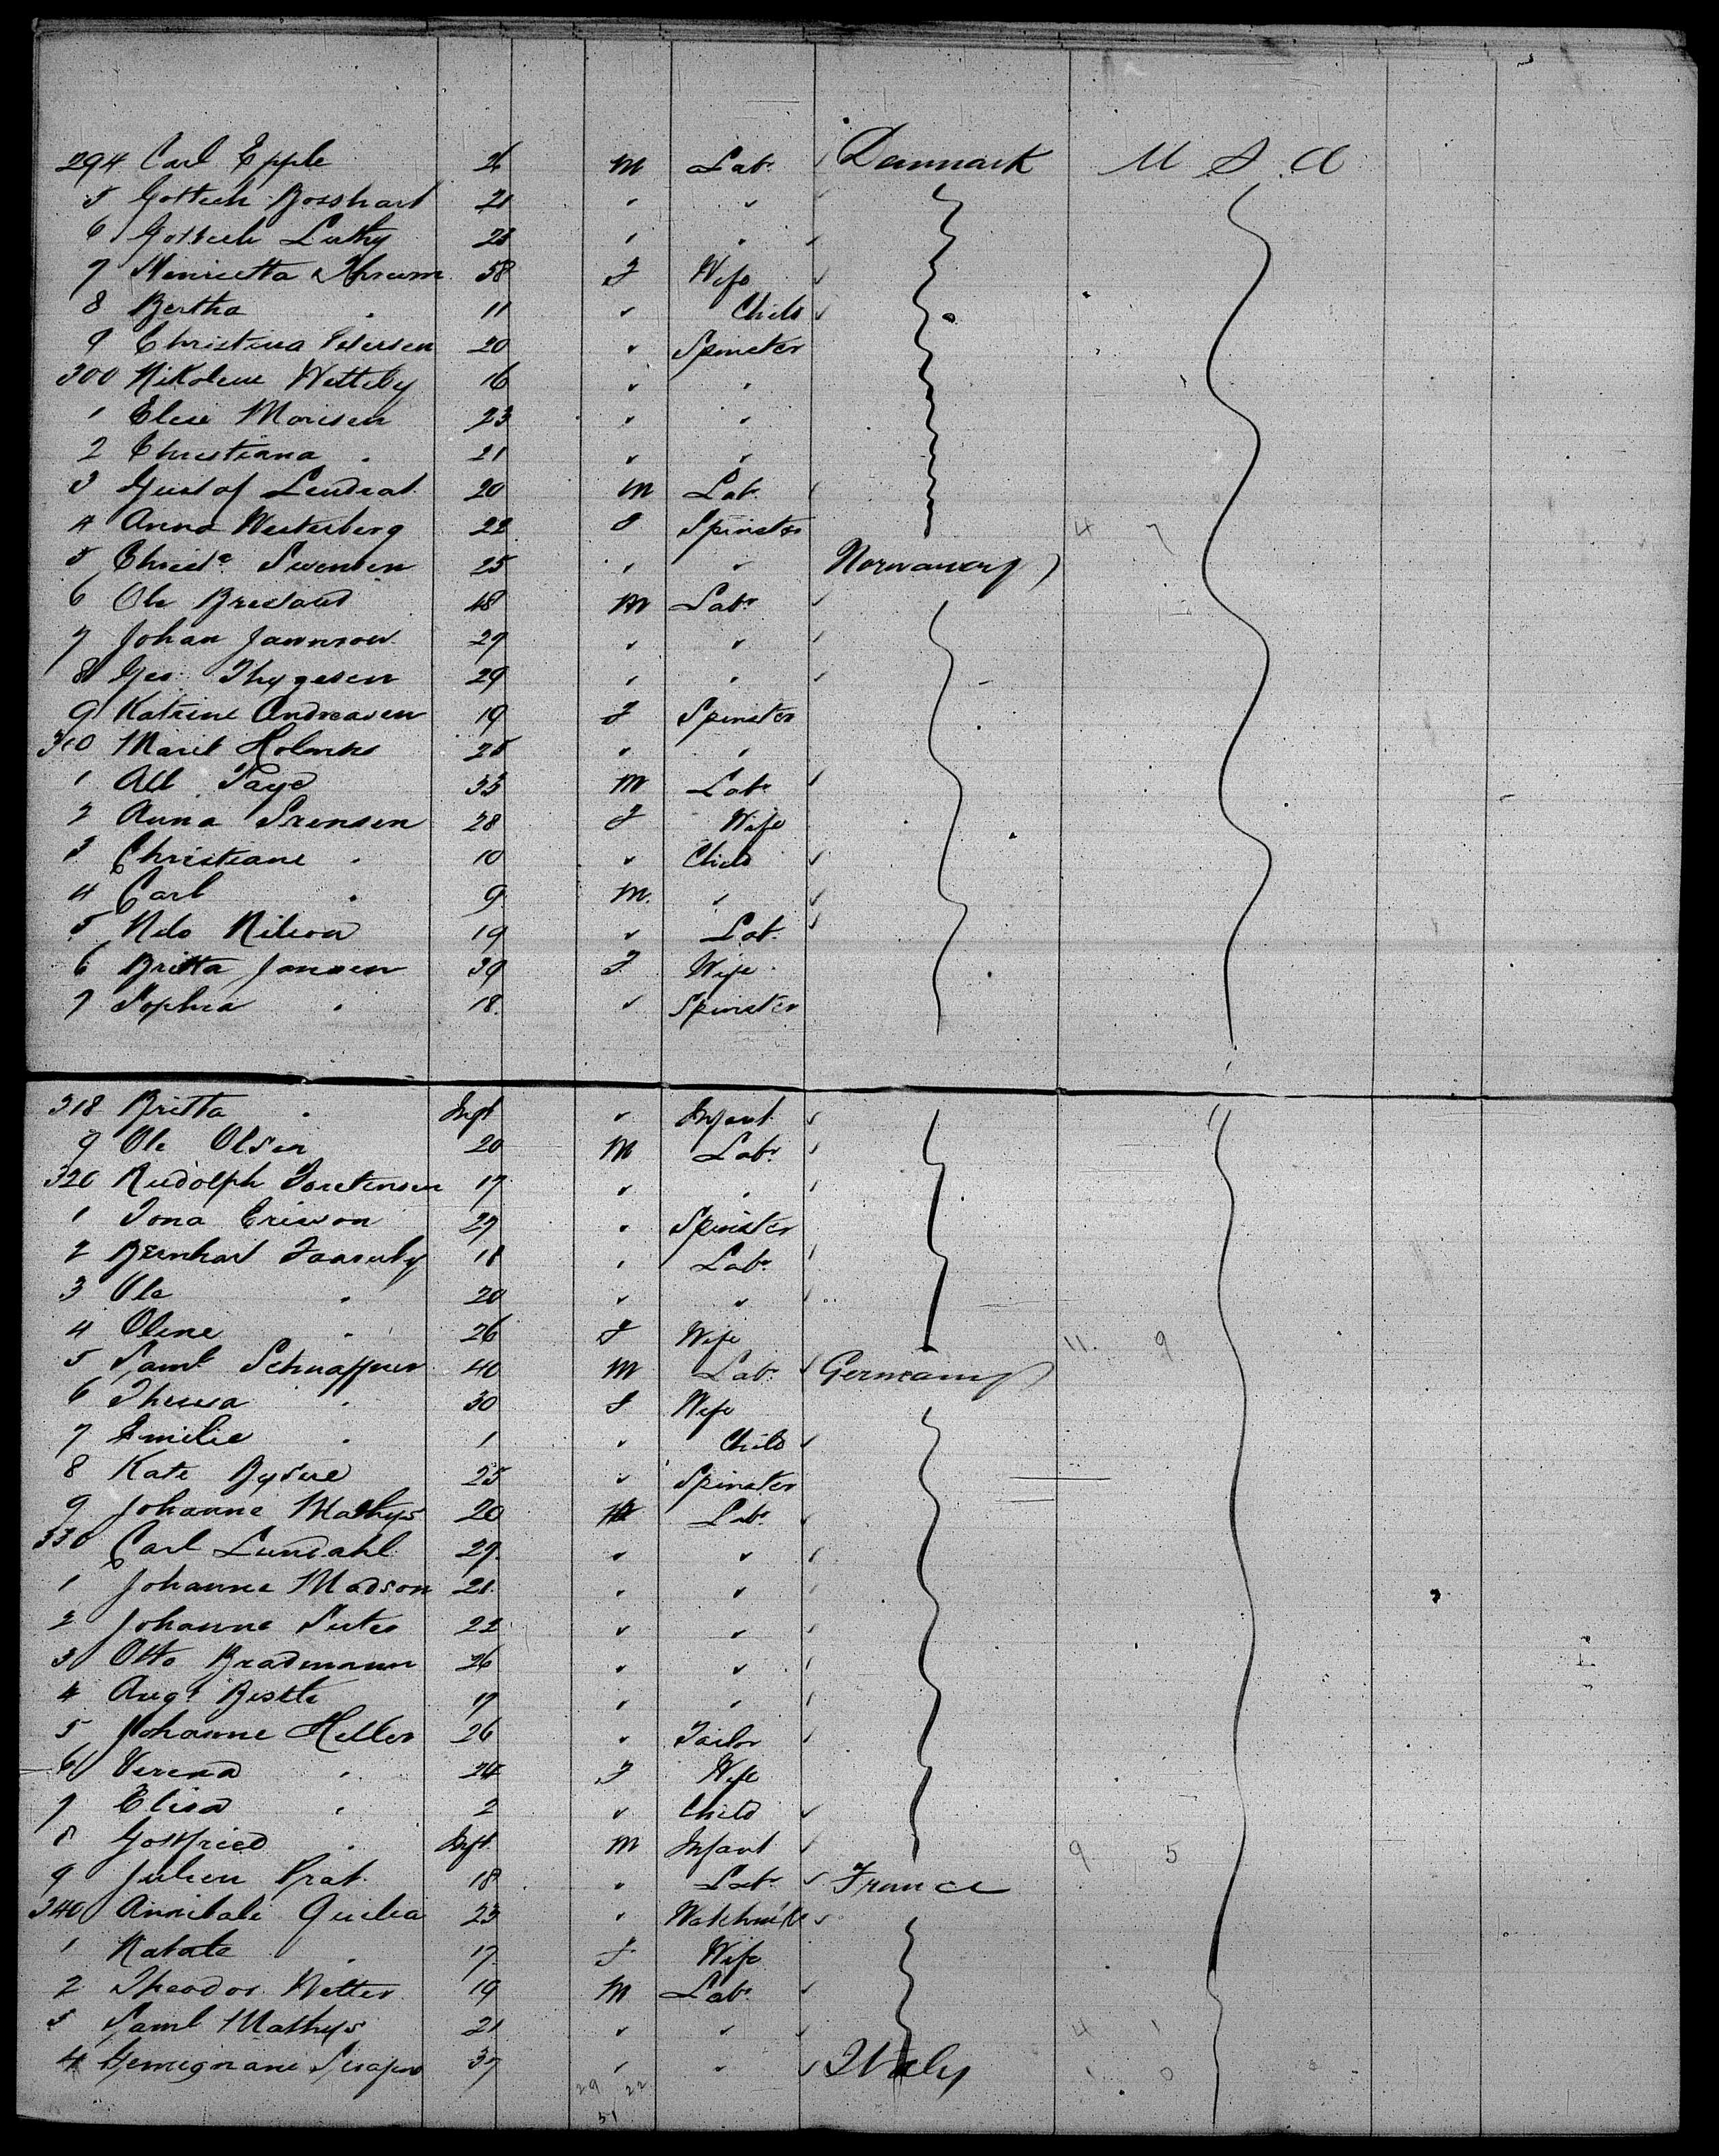 294 Carl Epple 26 M Labr Denmark U S A
5 Gottlieb Bosshart 21 " "
6 Gottlieb Luthy 23 " "
7 Henrietta 58 F Wife
8 Bertha " 11 " Child
9 Christina Petersen 20 " Spinster
300 Nikoline 16 " "
1 Elise Morisen 23 " "
2 Christiana " 21 " "
3 Gustaf 20 M Labr
4 Anna Westerberg 22 F Spinster 4 7
5 Christe Swensen 25 " " Norwawey
6 Ole 48 M Labr
7 Johan 27 " "
8 Geo Thygesen 29 " "
9 Katrine Andreasen 19 F Spinster
310 Marit 25 " "
1 33 M Labr
2 Anna Srensen 28 F Wife
3 Christiane " 10 " Child
4 Carl " 9 M "
5 Nels Nilson 19 " Labr
6 Britta Jansen 39 F Wife
7 Sophia " 18 " Spinster
318 Britta " Inft " Infant
9 Ole Olsen 20 M Labr
320 Rudolph 17 " "
1 Tona Ericson 27 " Spinster
2 Bernhart 18 " Labr
3 Ole " 20 " "
4 Oline " 26 F Wife 11 9
5 Saml 40 M Labr Germany
6 Theresa " 30 F Wife
7 Emilie " 1 " Child
8 Kate 25 " Spinster
9 Johanne Mathys 20 M Labr
330 Carl Lundahl 29 " "
1 Johanne Madson 21 " "
2 Johanne Suter 22 " "
3 Otto Brademann 26 " "
4 Augt 17 " "
5 Johanne Heller 26 " Tailor
6 Verena " 24 F Wife
7 Elisa " 2 " Child
8 Gottfried " Inft M Infant 9 5
9 Julien Prat 18 " Labr France
340 Annibale 23 " Watchmkr
1 " 17 F Wife
2 Theodor Netter 19 M Labr
3 Saml Mathys 21 " " 4 1
4 37 " " Italy 1 0
29 22
51